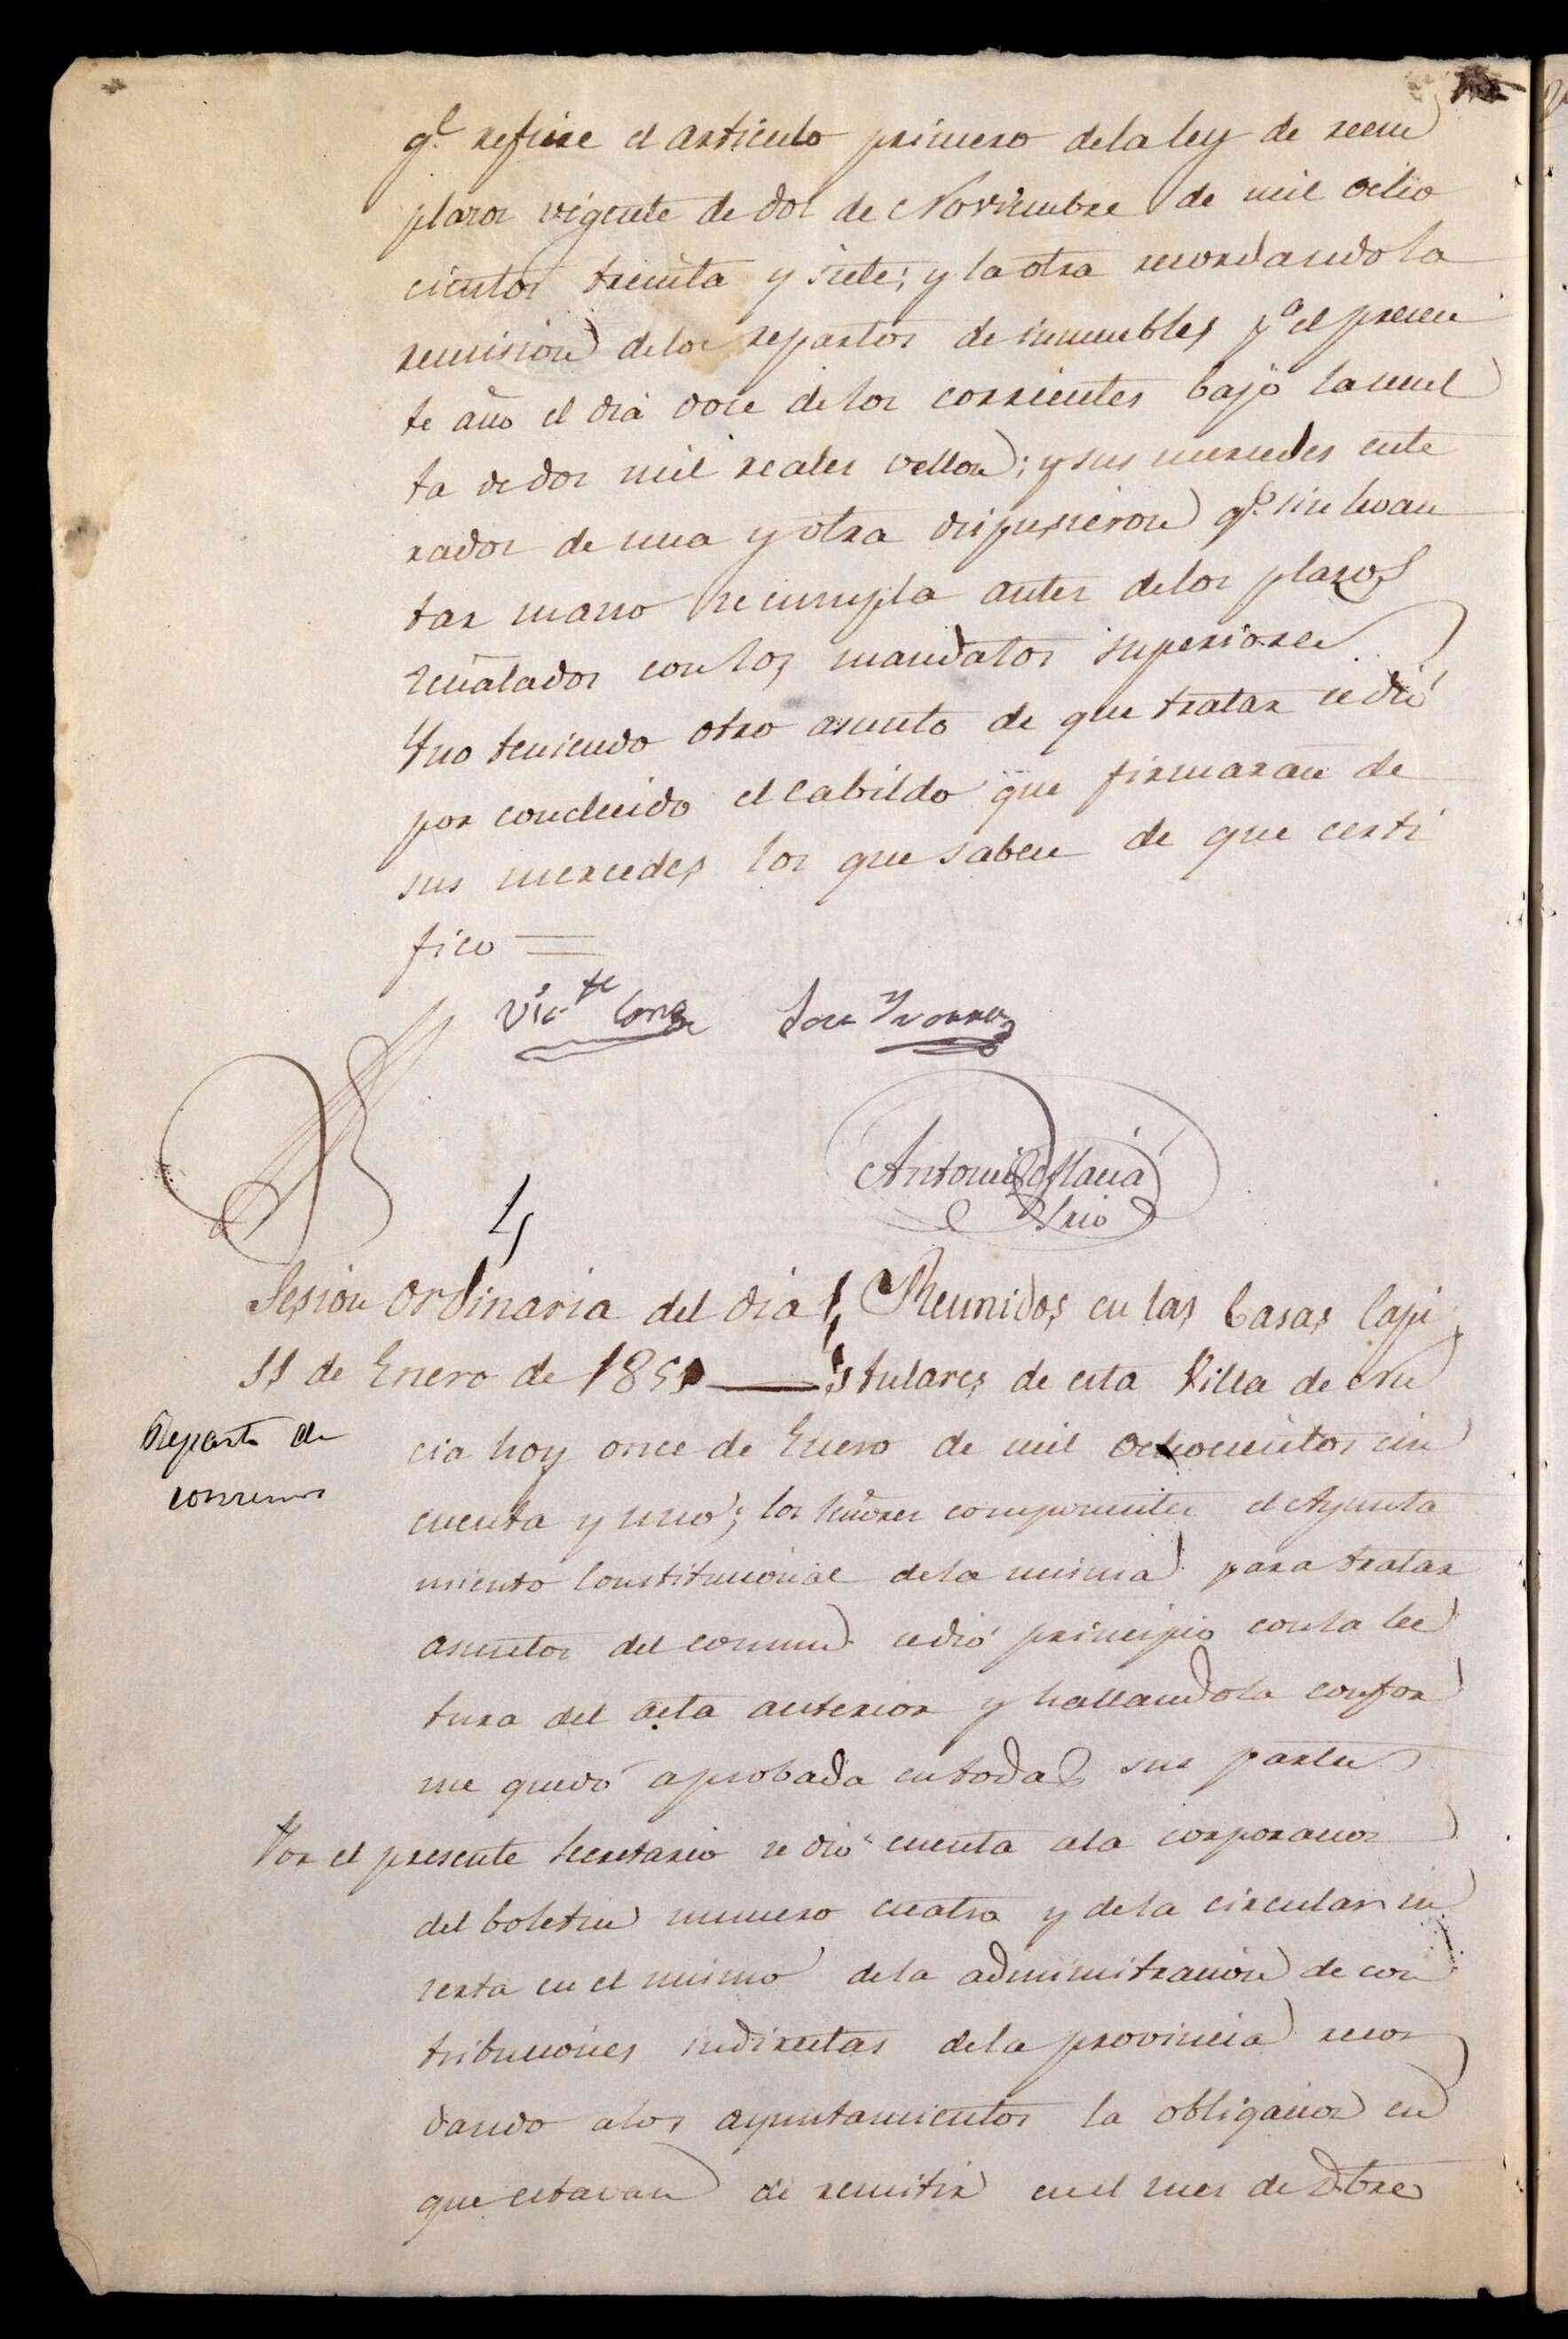 q.e refiere el articulo primero dela ley de reem
plazos vigente de dos de Noviembre de mil ocho
cientos treinta y siete; y la otra recordando la
remision delos repartos de inmuebles p.a el presen
te año el dia doce delos corrientes bajo lamul
ta de dos mil reales vellon; y sus mercedes ente
rados de una y otra dispusieron q.e sin levan
tar mano se cumpla antes delos plazos
señalados con los mandatos superiores
Y no teniendo otro asunto de que tratar se dió
por concluido el cabildo que firmaran de
sus mercedes los que saben de que certi
fico =
Vic.te
Antonio Maciá
Srio
4
Sesion ordinaria del dia
11 de Enero de 1851
Reparto de
consumos
Reunidos en las Casas Capi
tulares de esta Villa de
cia hoy once de Enero de mil ochocientos cin
cuenta y uno; los Señores componentes el Ayunta
miento Constitucional dela misma para tratar
asuntos del comun se dió principio con la lec
tura del acta anterior y hallandola confor
me quedó aprobada en todas sus partes
Por el presente Secretario se dió cuenta ala corporacion
del boletin numero cuatro y dela circular in
serta en el mismo dela administracion de con
tribuciones indirectas dela provincia recor
dando alos ayuntamientos la obligacion en
que estavan de remitir en el mes de Dbre